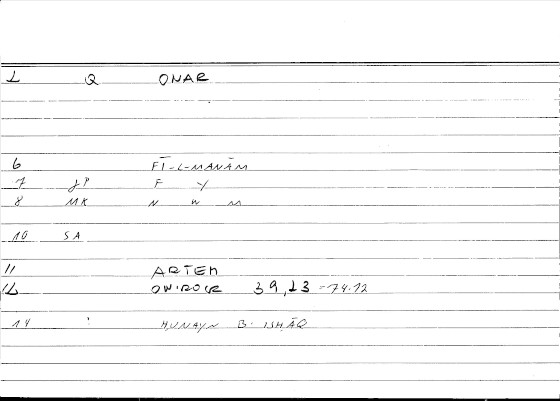 1 Q ONAR
6 FĪ-L-MANĀM
7 JP F Y
8 MK N W M
10 SA
11 ARTEM
12 ONIROCR 39,13 = 74.12
14 : HUNAYN B. ISHĀQ